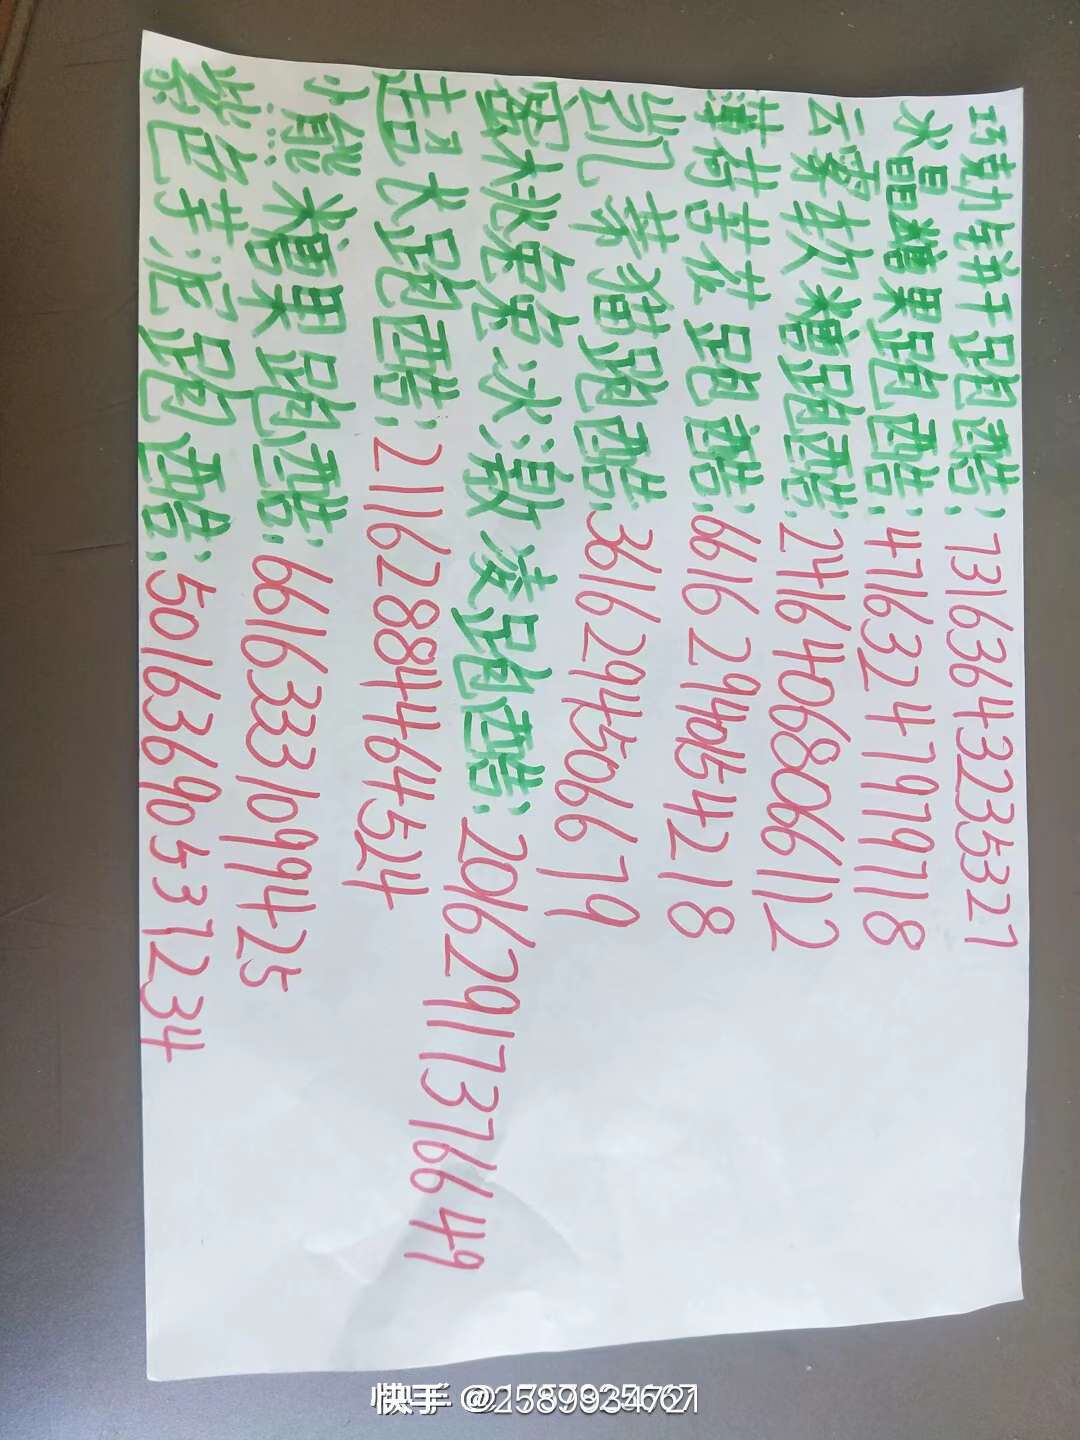 巧克力饼干跑酷:73163643235327
水晶糖果跑酷:4716324797978
云雾软糖跑酷:2416406806112
薄荷苦花跑酷:6616294054218
凯蒂猫跑酷:3616294506679
蜜桃兔兔冰激凌跑酷:20162917376649
超大跑酷:21162884464524
小熊糖果跑酷:66163331099425
紫色芋泥跑酷:50163690537234
快手